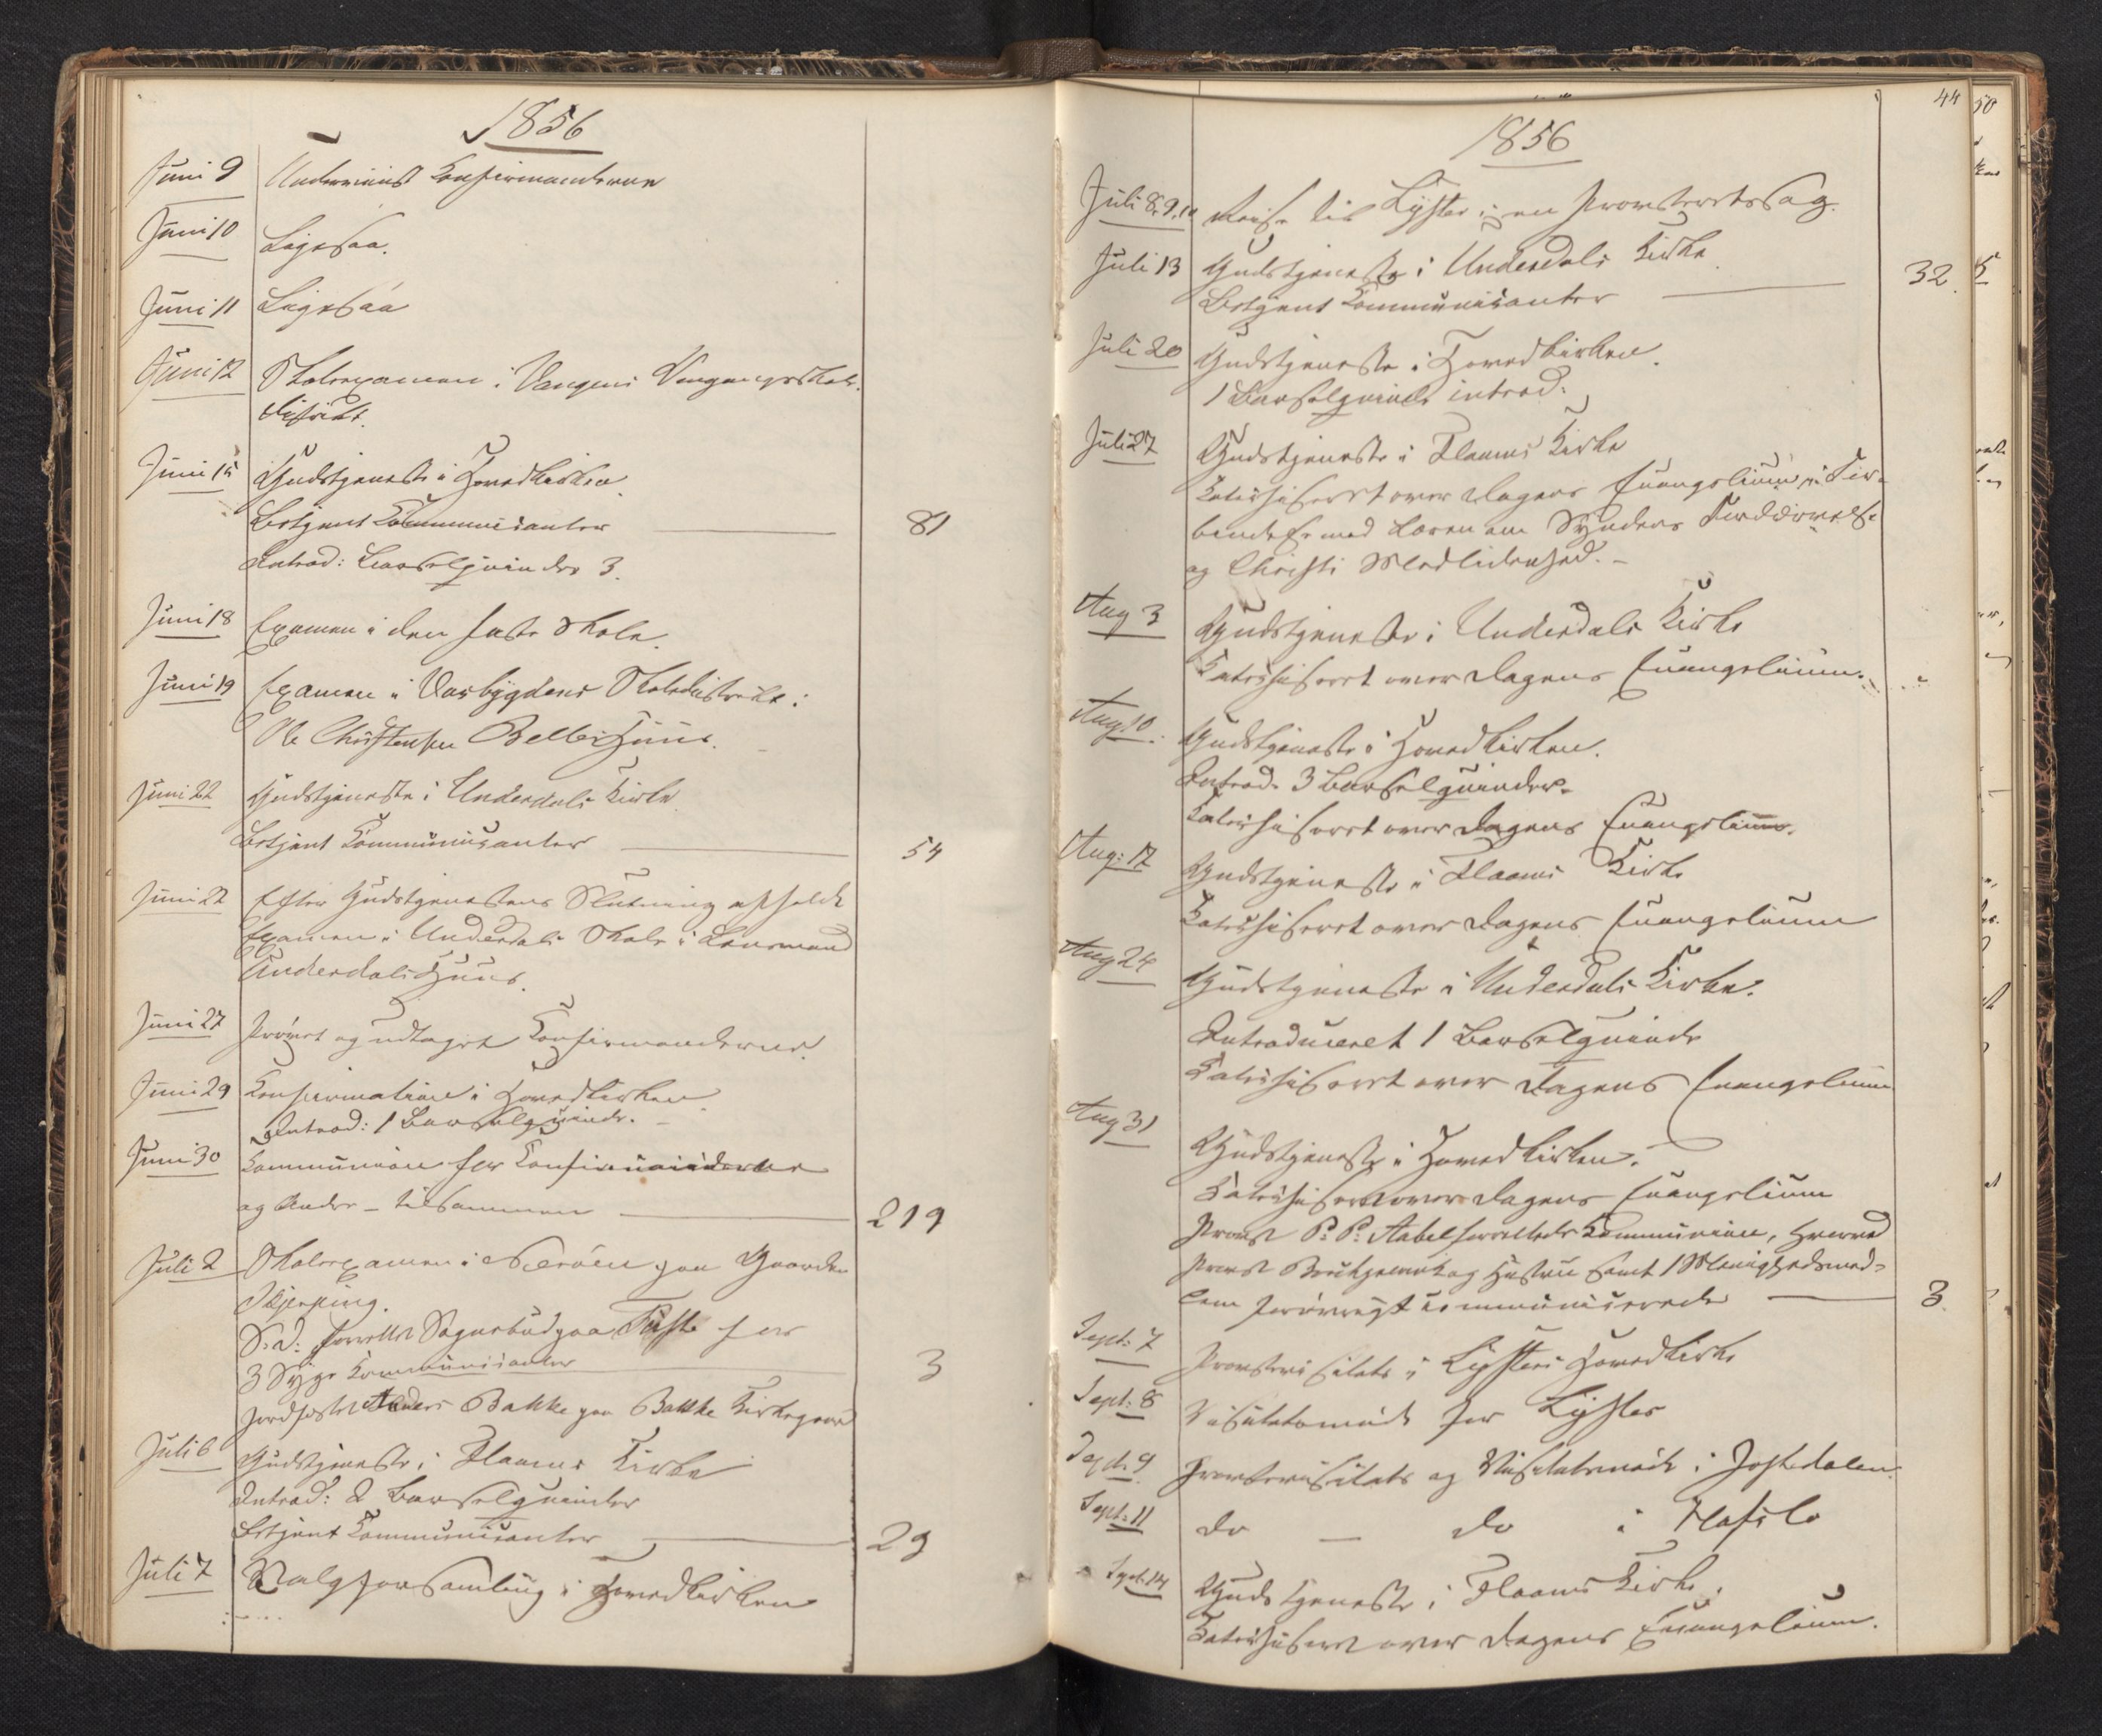 1856
Juni 9 Underviist Confirmanderne
Juni 10 Ligesaa.
Juni 11 Ligesaa
Juni 12 Skoleexamen i Vangens Omgangsskole-
district.
Juni 15 Gudstjeneste i Hovedkirken
Betjent Communicanter 81
Introd: Barselqvinder 3.
Juni 18 Examen i den faste Skole.
Juni 19 Examen i Vasbygdens Skoledistrikt i
Ole Christensen Belles Huus.
Juni 22 Gudstjeneste i Underdals Kirke
Betjent Communicanter 54
Juni 22 Efter Gudstjenestens Slutning afholdt
Examen i Underdals Skole i Lensmand
Underdals Huus.
Juni 27 Prøvet og udtaget Confirmanderne.
Juni 29 Confirmation i Hovedkirken
Introd: 1 Barselqvinde.
Juni 30 Communion for Confirmanderne
og Andre – tilsammen 219
Juli 2 Skoleexamen i Nerøen paa Gaarden
Skjerping.
S. D. forrettet Sognebud paa for
3 Syge Communicanter 3
Jordfæstet Anders Bakke paa Bakke Kirkegaard
Juli 6 Gudstjeneste i Flaams Kirke
Introd: 2 Barselqvinder
Betjent Communicanter 29
Juli 7 Valgforsamling i Hovedkirken
44
1856
Juli 8. 9. 10 Reise til Lyster i en Provsteretssag.
Juli 13 Gudstjeneste i Underdals Kirke
Betjent Communicanter 32
Juli 20 Gudstjeneste i Hovedkirken.
1 Barselqvinde introd:
Juli 27 Gudstjeneste i Flaams Kirke
Catechiseret over Dagens Evangelium i For-
bindelse med Læren om Syndens Fordærvelse
og Christi Medlidenhed. –
Aug 3 Gudstjeneste i Underdals Kirke
Catechiseret over Dagens Evangelium.
Aug. 10. Gudstjeneste i Hovedkirken.
Introd. 3 Barselqvinder.
Catechiseret over Dagens Evangelium.
Aug: 17 Gudstjeneste i Flaams Kirke
Catechiseret over Dagens Evangelium
Aug 24 Gudstjeneste i Underdals Kirke.
Introduceret 1 Barselqvinde
Catechiseret over Dagens Evangelium
Aug 31 Gudstjeneste i Hovedkirken.
Catechiseret over Dagens Evangelium
Provst P. P. Aabel forrettede Communion, hvorved
Provst og Hustru samt 1 Menighedsmed-
lem forøvrigt communicerede 3.
Sept: 7 Provstevisitats i Lysters Hovedkirke
Sept: 8 Visitatsmøde for Lyster
Sept. 9 Provstevisitats og Visitatsmøde i Jostedalen.
Sept: 11 do – do i Hafslo
Sept. 14 Gudstjeneste i Flaams Kirke.
Catechiseret over Dagens Evangelium.